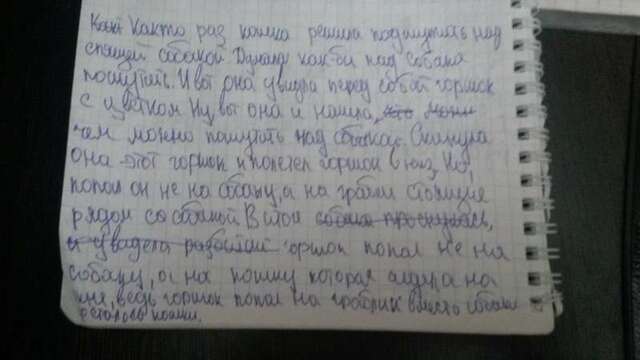 Както раз кошка решила подшутить над
спящей собакой. Думала как бы над собака
пошутить. И вот она увидла перед собой горшок
с цветком. Ну вот она и нашла,
чем можно пошутить над собакой. Скинула
она этот горшок и полетел горшок вниз. Но,
попал он не на собаку, а на грабли стоящие
рядом со собакой. В итоге собака проснулась,
и увидела разбитый горшок попал не на
собаку, а на кошку которая сидела на
ведь горшок попал на грабли вместо собаки
досталось кошки.